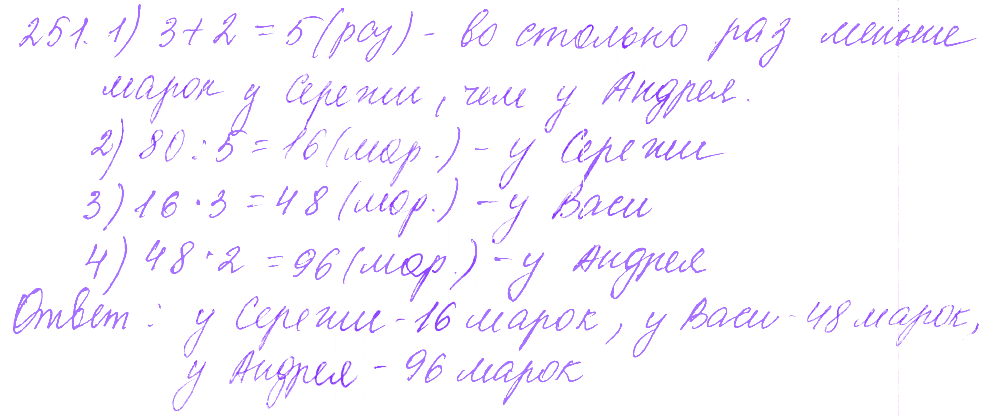 251. 1) 3+2=5(раз) - во столько раз меньше
марок у Сережи, чем у Андрея.
2) 80:5=16(мар.) - у Сережи
3) 16·3=48(мар.) - у Васи
4) 48·2=96(мар.) - у Андрея
Ответ: у Сережи - 16 марок, у Васи - 48 марок,
у Андрея - 96 марок